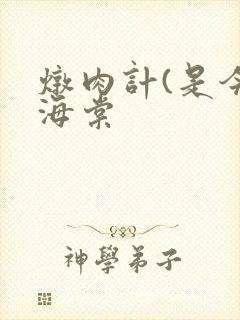 燉肉計(是今
海棠
神學弟子